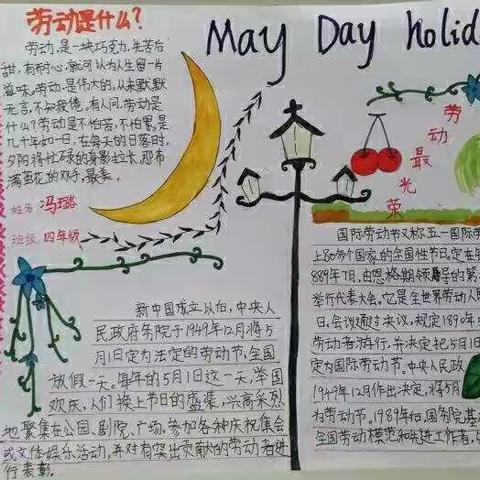 劳动是什么?
劳动,是一块巧克力,先苦后
甜,有树心
味,劳动,是伟大的,从来默默
无言,不知疲倦,有人问,劳动是
什么?劳动是不怕苦,不怕累,是
九十年如一日,在每天的日落时,
夕阳将忙碌的身影拉长,那布
满茧花的双手,最美。
姓名 冯璐
班级 四年级
May Day holid
劳动最光荣
新中国成立以后,中央人
民政府务院于1949年12月将5
月1日定为法定的劳动节,全国
放假一天。每年的5月1日这一天,举国
欢庆,人们换上节日的盛装,兴高采烈
地聚集在公园、剧院、广场,参加各种庆祝集会
或文体娱乐活动,并对有突出贡献的劳动者进
行表彰。
国际劳动节又称五一国际劳
上80多个国家的全国性节日,定在
889年7月,由恩格斯领导的第
举行代表大会。它是全世界劳动人民
日,会议通过决议,规定1890年
劳动者游行,并决定把5月1日
定为国际劳动节。中央人民政
1949年12月作出决定,将5月
为劳动节。1989年后,国务院基
全国劳动模范和先进工作者,